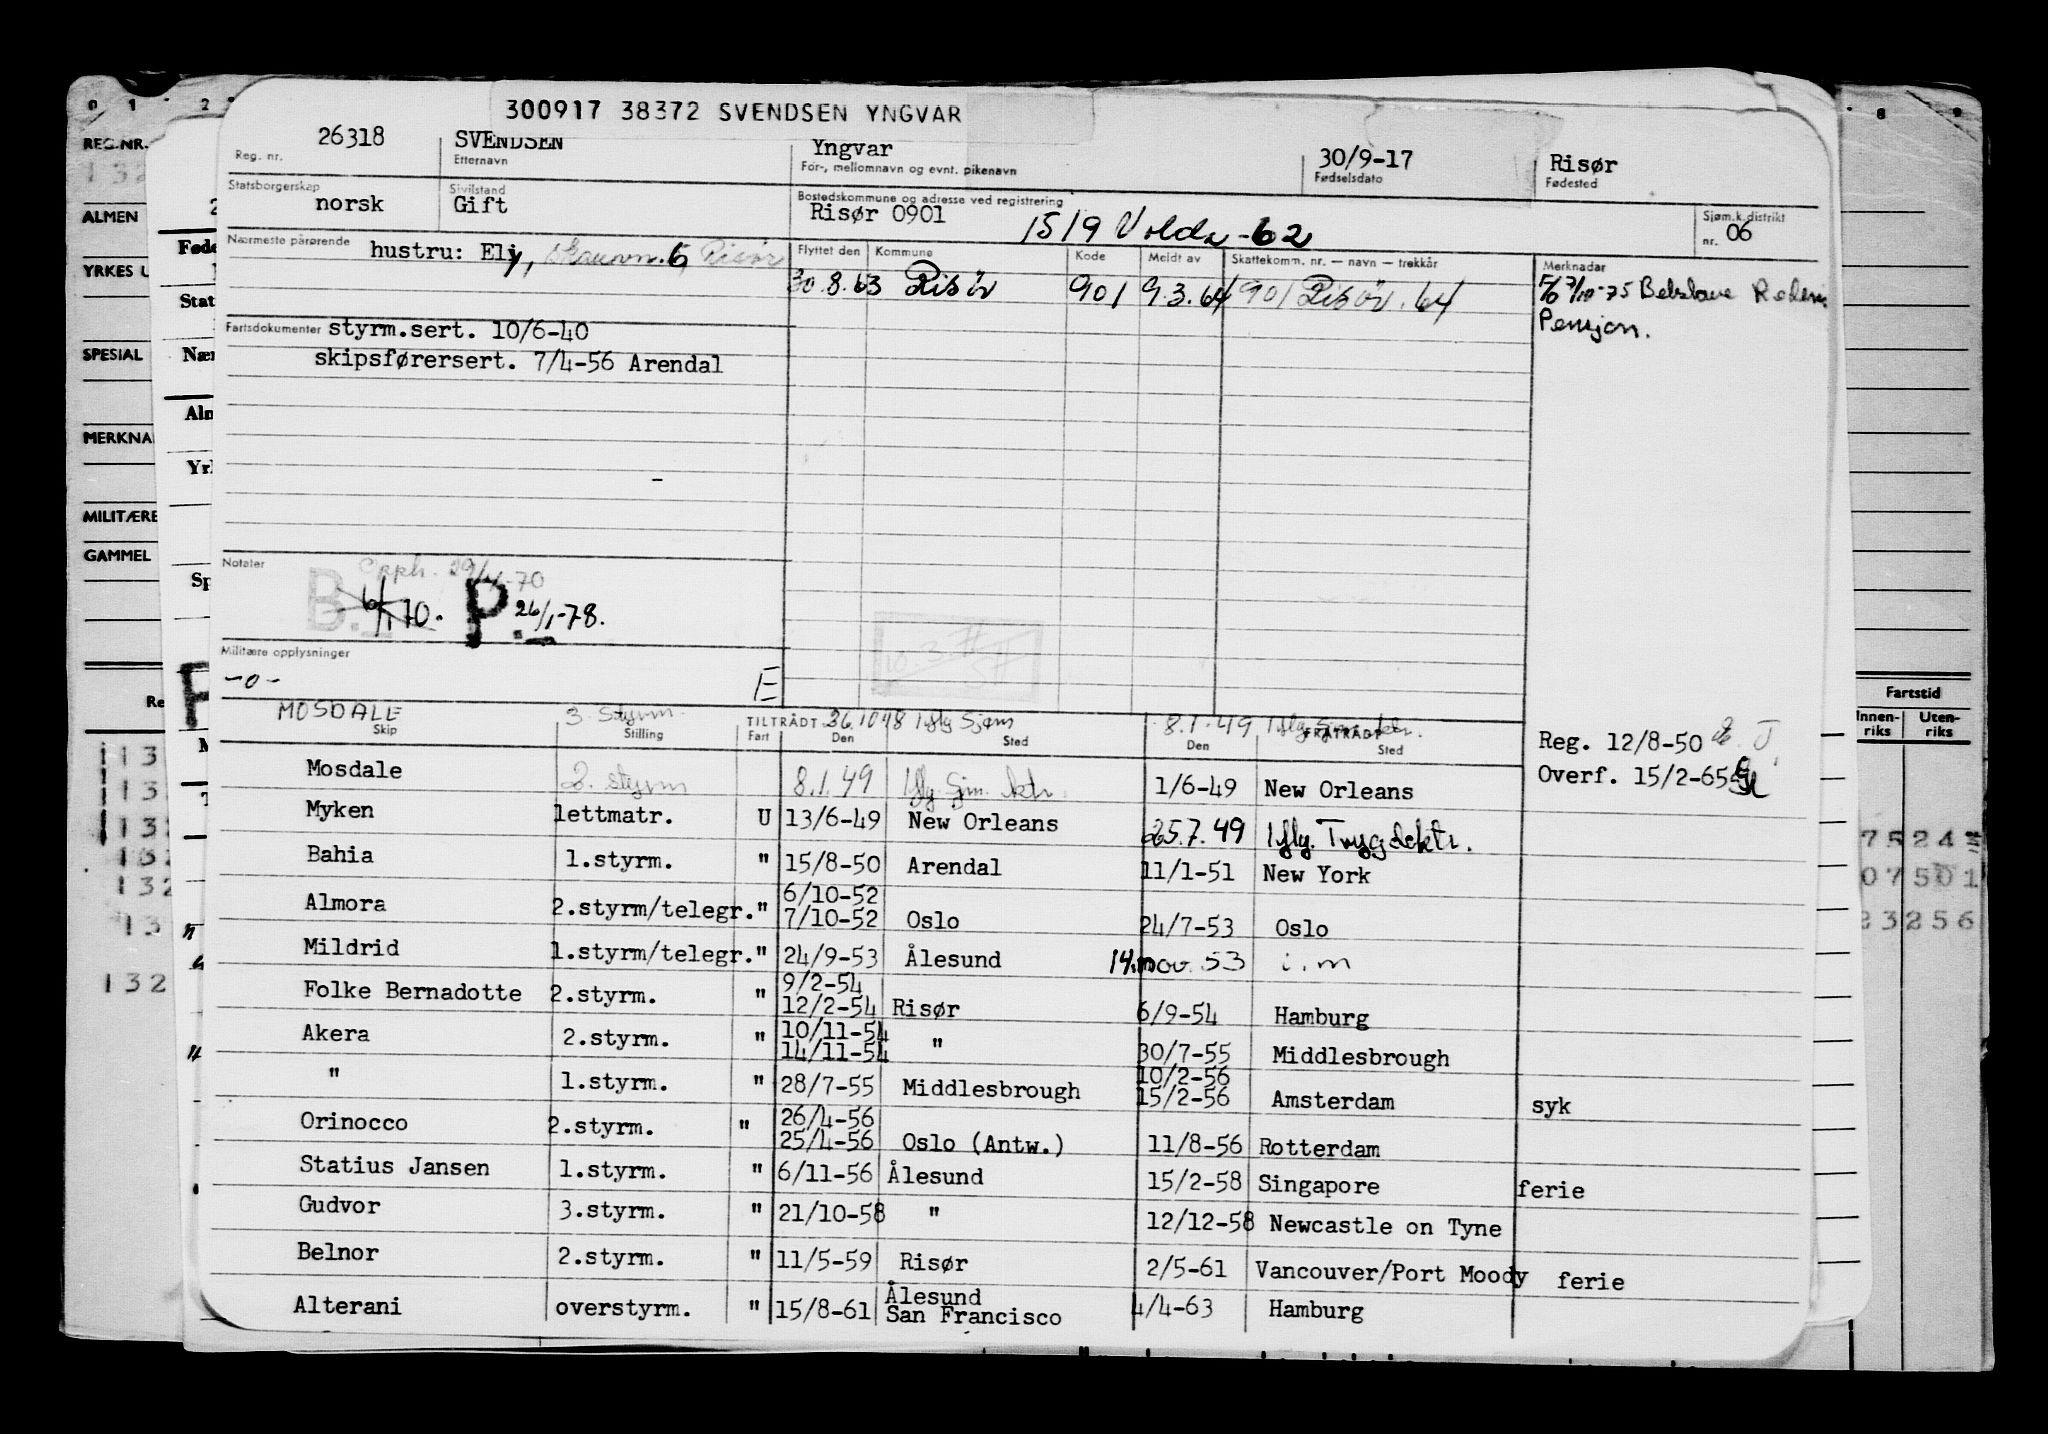 300917 38372 SVENDSEN YNGVAR
26318 SVENDSEN Yngvar 30/9-17 Risør
Reg. nr. Etternavn For-, mellomnavn og evnt. pikenavn Fødselsdato Fødested
Statsborgerskap Sivilstand Bostedskommune og adresse ved registrering Sjøm.k.distrikt
norsk Gift Risør 0901 1519 Volda -62 nr. 06
Nærmeste pårørende hustru: Ely, 6, Risør
Flyttet den Kommune Kode Meldt av Skattekomm. nr. — navn — trekkår Merknadar
30.8.63 Risör 901 9.3.64 901 Risör. 64
Pensjon.
Fartsdokumenter styrm.sert. 10/6-40
skipsførersert. 7/4-56 Arendal
Notater
Opph. 70
B. P. 26/1-78.
Militære opplysninger
-o- E
MOSDALE 3. styrm. TILTRÅDT 8.1.49 FRATRÅDT
Skip Stilling Fart Den Sted Den Sted
Reg. 12/8-50
Overf. 15/2-65
Mosdale 2. styrm 8.1.49 1/6-49 New Orleans
Myken lettmatr. U 13/6-49 New Orleans 25.7.49 iflg. Trygdektr.
Bahia 1.styrm. " 15/8-50 Arendal 11/1-51 New York
6/10-52
Almora 2.styrm/telegr." 7/10-52 Oslo 24/7-53 Oslo
Mildrid 1.styrm/telegr." 24/9-53 Ålesund 14.nov.53 i.m
9/2-54
Folke Bernadotte 2.styrm. " 12/2-54 Risør 6/9-54 Hamburg
10/11-54
Akera 2.styrm. " 14/11-54 " 30/7-55 Middlesbrough
10/2-56
" 1.styrm. " 28/7-55 Middlesbrough 15/2-56 Amsterdam syk
26/4-56
Orinocco 2.styrm. " 25/4-56 Oslo (Antw.) 11/8-56 Rotterdam
Statius Jansen 1.styrm. " 6/11-56 Ålesund 15/2-58 Singapore ferie
Gudvor 3.styrm. " 21/10-58 " 12/12-58 Newcastle on Tyne
Belnor 2.styrm. " 11/5-59 Risør 2/5-61 Vancouver/Port Moody ferie
Ålesund
Alterani overstyrm. " 15/8-61 San Francisco 4/4-63 Hamburg
0 1 2
REG.NR.
ALMEN
YRKES
SPESIAL
MERKNA
MILITÆRE
GAMMEL
8 9
Fartstid
Innen-riks Uten-riks
75 24
07501
23256